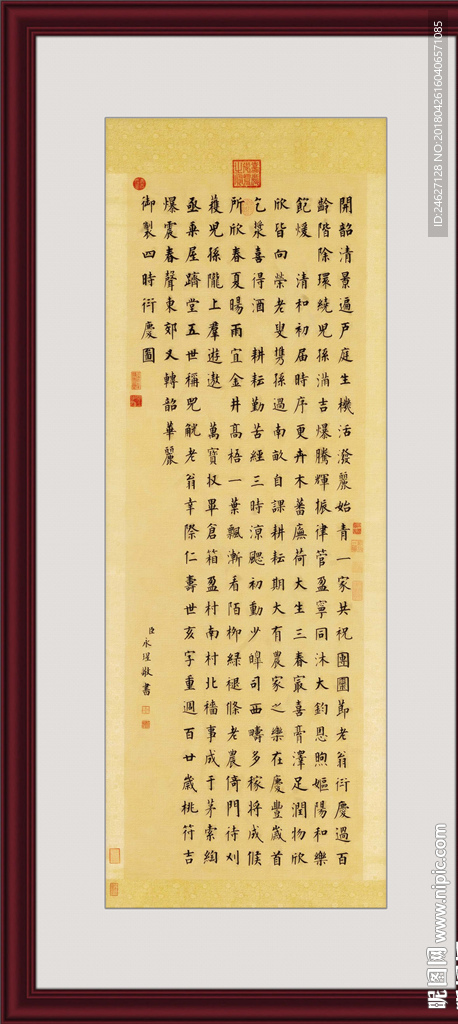 開韶清景遍戸庭生機活潑麗始青一家共祝團圞節老翁衍慶過百
齡階除環繞兒孫滿吉爆騰輝振律管盈寧同沐大鈞恩煦嫗陽和樂
飽煖 清和初屆時序更卉木蕃廡荷大生三春最喜膏澤足潤物欣
欣皆向榮老叟携孫過南畝自課耕耘期大有農家之樂在慶豐歲首
乞漿喜得酒 耕耘勤苦經三時涼颸初動少皥司西疇多稼將成候
所欣春夏暘雨宜金井高梧一葉飄漸看陌栁緑褪條老農倚門待刈
穫兒孫隴上羣遊遨 萬寶收畢倉箱盈村南村北穡事成于茅索綯
亟乗屋躋堂五世稱兕觥老翁幸際仁壽世亥字重週百廿歲桃符吉
爆震春聲東郊又轉韶華麗
御製四時衍慶圖
臣永瑆敬書
ID:24627128 NO:20180426160406571085
昵图网 www.nipic.com